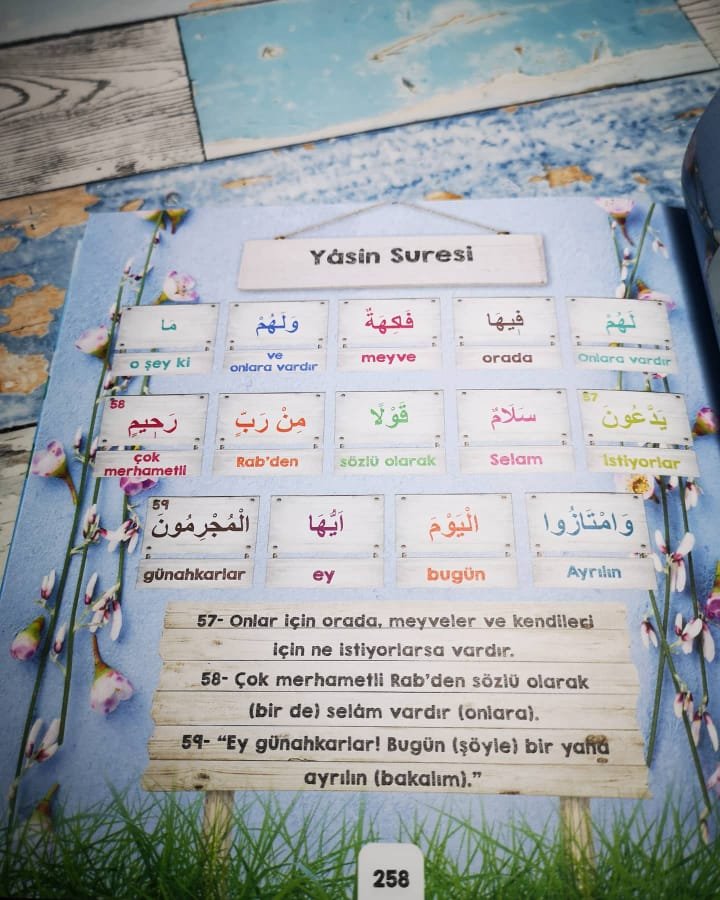 Yâsin Suresi
لَهُمْ فٖيهَا فَاكِهَةٌ وَلَهُمْ مَا
Onlara vardır orada meyve ve onlara vardır o şey ki
يَدَّعُونَ 57 سَلَامٌ قَوْلًا مِنْ رَبٍّ رَحٖيمٍ 58
istiyorlar Selam sözlü olarak Rab’den çok merhametli
وَامْتَازُوا الْيَوْمَ اَيُّهَا الْمُجْرِمُونَ 59
Ayrılın bugün ey günahkarlar
57- Onlar için orada, meyveler ve kendileri
için ne istiyorlarsa vardır.
58- Çok merhametli Rab’den sözlü olarak
(bir de) selâm vardır (onlara).
59- “Ey günahkarlar! Bugün (şöyle) bir yana
ayrılın (bakalım).”
258